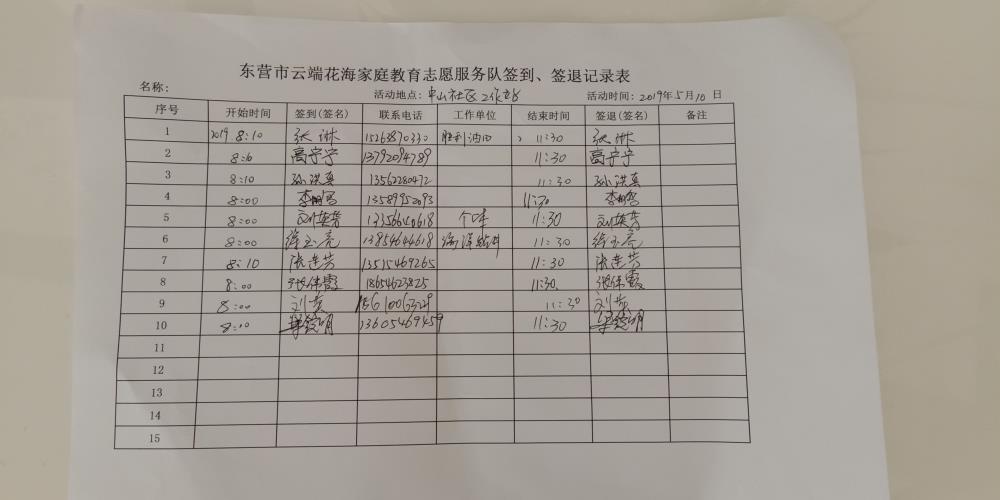 东营市云端花海家庭教育志愿服务队签到、签退记录表
名称： 活动地点： 社区工作站 活动时间：2019年5月10日
序号 开始时间 签到(签名) 联系电话 工作单位 结束时间 签退(签名) 备注
1 2019 8:10 张琳 15263870330 胜利油田 11:30 张琳
2 高宇宁 13792094789 11:30 高宇宁
3 8:10 孙洪真 13562280472 11:30 孙洪真
4 8:00 13589952093 11:30
5 8:00 刘英芳 13356640618 11:30 刘英芳
6 8:00 徐玉亮 13854644618 11:30 徐玉亮
7 8:10 张连芳 13515469265 11:30 张连芳
8 8:00 张保霞 18654623825 11:30 张保霞
9 8:00 11:30
10 13605469459 11:30
11
12
13
14
15